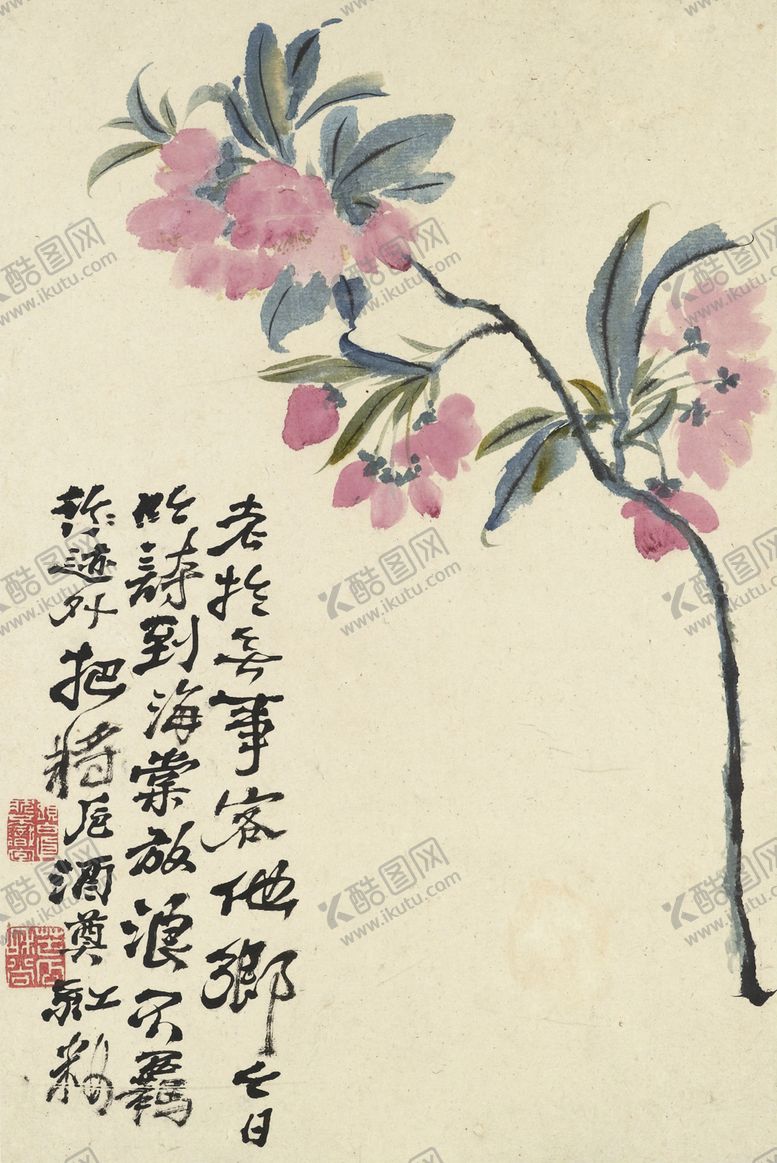 老扵無事客他鄉今日
吟詩到海棠放浪不羈
形迹外把將卮酒奠紅粧
酷图网
www.ikutu.com